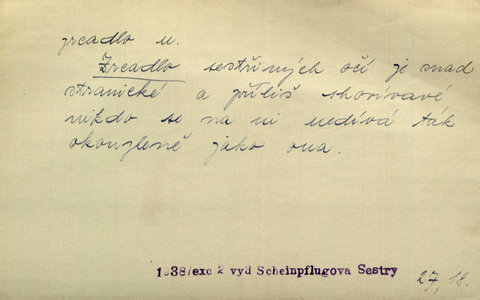 zrcadlo n.
Zrcadlo sestřiných očí je snad
stranické a příliš shovívavé
nikdo se na ni nedívá tak
okouzleně jako ona.
1938/exc 2 vyd Scheinpflugova Sestry
27,